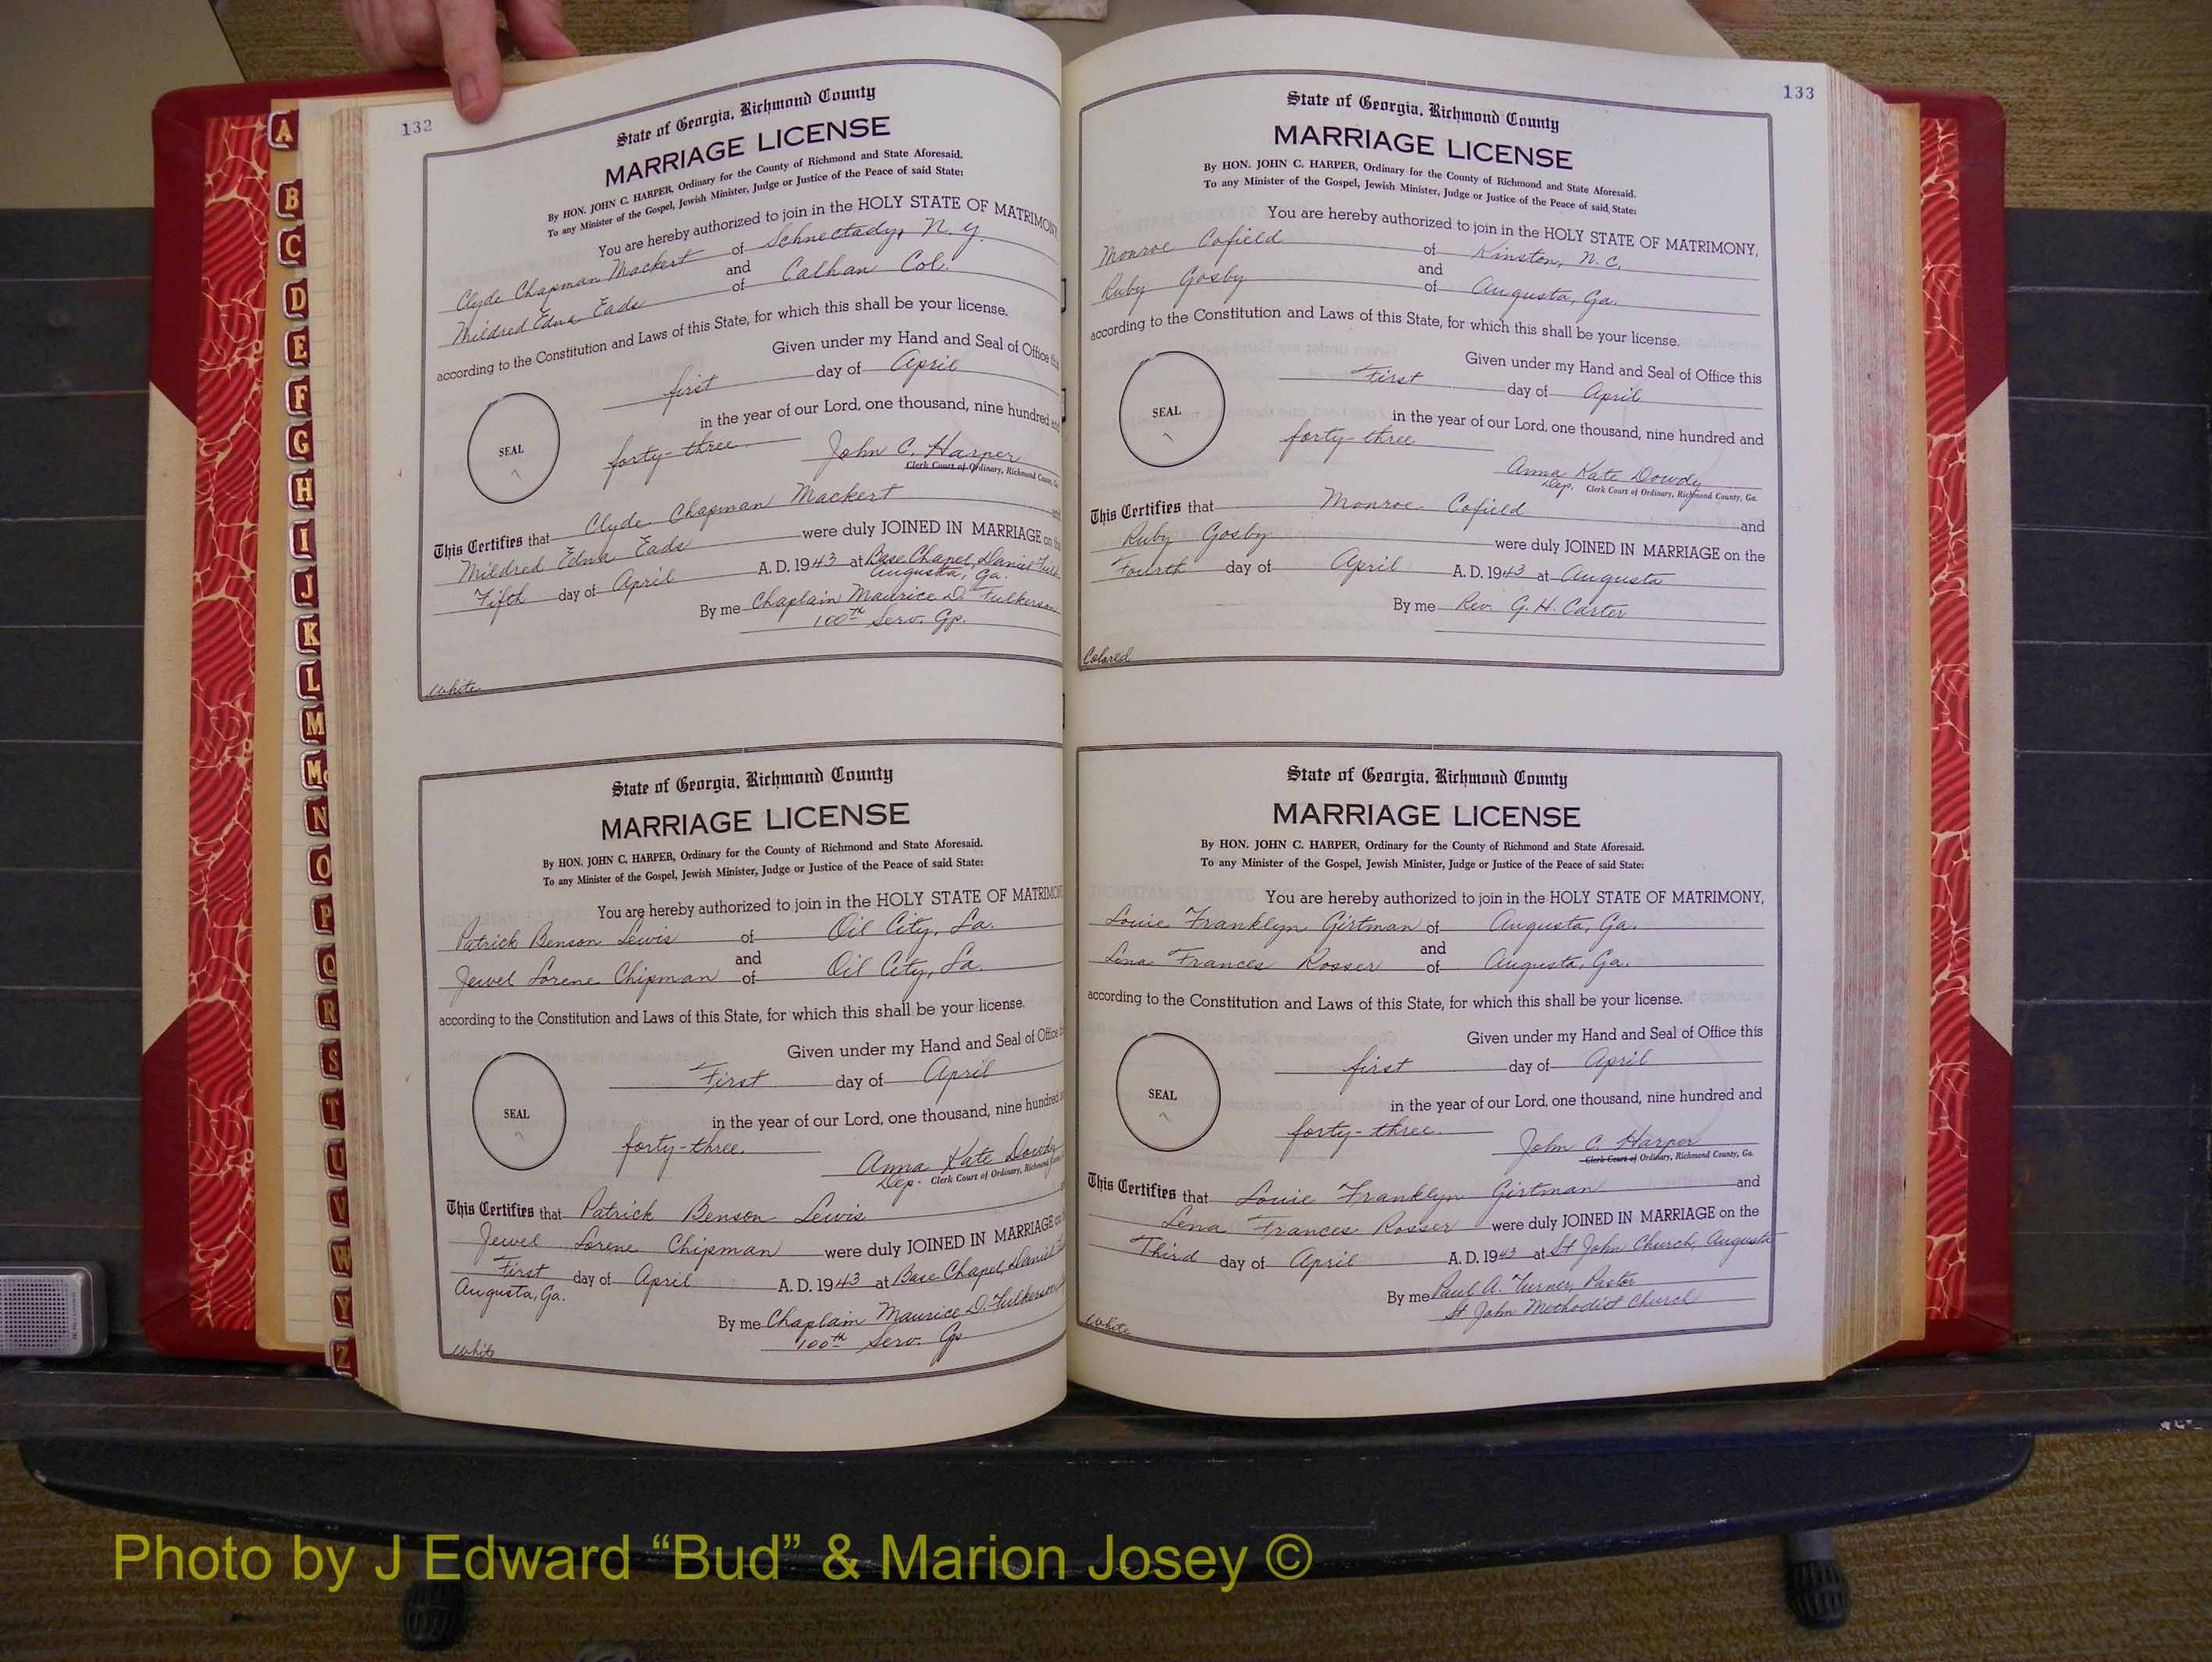 A
B
C
D
E
F
G
H
I
J
K
L
M
Mc
N
O
P
Q
R
S
T
U
V
W
Y
Z
132
State of Georgia, Richmond County
MARRIAGE LICENSE
By HON. JOHN C. HARPER, Ordinary for the County of Richmond and State Aforesaid.
To any Minister of the Gospel, Jewish Minister, Judge or Justice of the Peace of said State:
You are hereby authorized to join in the HOLY STATE OF MATRIMONY
Clyde Chapman Mackert of Schnectady, N. Y.
and
Mildred Edna Eads of Calhan Col.
according to the Constitution and Laws of this State, for which this shall be your license.
Given under my Hand and Seal of Office this
first day of April
in the year of our Lord, one thousand, nine hundred and
SEAL
forty-three John C. Harper
Clerk Court of Ordinary, Richmond County, Ga.
This Certifies that Clyde Chapman Mackert and
Mildred Edna Eads were duly JOINED IN MARRIAGE on the
Fifth day of April A. D. 1943 at Base Chapel, Daniel Field
Augusta, Ga.
By me Chaplain Maurice D. Fulkerson
100th Serv. Gp.
White
State of Georgia, Richmond County
MARRIAGE LICENSE
By HON. JOHN C. HARPER, Ordinary for the County of Richmond and State Aforesaid.
To any Minister of the Gospel, Jewish Minister, Judge or Justice of the Peace of said State:
You are hereby authorized to join in the HOLY STATE OF MATRIMONY
Patrick Benson Lewis of Oil City, La.
and
Jewel Lorene Chipman of Oil City, La.
according to the Constitution and Laws of this State, for which this shall be your license.
Given under my Hand and Seal of Office
First day of April
in the year of our Lord, one thousand, nine hundred
SEAL
forty-three. Anna Kate Dowdy
Dep. Clerk Court of Ordinary, Richmond County
This Certifies that Patrick Benson Lewis
Jewel Lorene Chipman were duly JOINED IN MARRIAGE on
First day of April A. D. 1943 at Base Chapel, Daniel
Augusta, Ga.
By me Chaplain Maurice D. Fulkerson
100th Serv. Gp
White
133
State of Georgia, Richmond County
MARRIAGE LICENSE
By HON. JOHN C. HARPER, Ordinary for the County of Richmond and State Aforesaid.
To any Minister of the Gospel, Jewish Minister, Judge or Justice of the Peace of said State:
You are hereby authorized to join in the HOLY STATE OF MATRIMONY,
Monroe Cofield of Kinston, N. C.
and
Ruby Gosby of Augusta, Ga.
according to the Constitution and Laws of this State, for which this shall be your license.
Given under my Hand and Seal of Office this
First day of April
in the year of our Lord, one thousand, nine hundred and
SEAL
forty-three
Anna Kate Dowdy
Dep. Clerk Court of Ordinary, Richmond County, Ga.
This Certifies that Monroe Cofield and
Ruby Gosby were duly JOINED IN MARRIAGE on the
Fourth day of April A. D. 1943 at Augusta
By me Rev. G. H. Carter
Colored
State of Georgia, Richmond County
MARRIAGE LICENSE
By HON. JOHN C. HARPER, Ordinary for the County of Richmond and State Aforesaid.
To any Minister of the Gospel, Jewish Minister, Judge or Justice of the Peace of said State:
You are hereby authorized to join in the HOLY STATE OF MATRIMONY,
Louie Franklyn Girtman of Augusta, Ga.
and
Lena Frances Rosser of Augusta, Ga.
according to the Constitution and Laws of this State, for which this shall be your license.
Given under my Hand and Seal of Office this
first day of April
in the year of our Lord, one thousand, nine hundred and
SEAL
forty-three. John C. Harper
Clerk Court of Ordinary, Richmond County, Ga.
This Certifies that Louie Franklyn Girtman and
Lena Frances Rosser were duly JOINED IN MARRIAGE on the
Third day of April A. D. 1943 at St John Church, Augusta
By me Paul A. Turner, Pastor
St John Methodist Church
White
Photo by J Edward “Bud” & Marion Josey ©